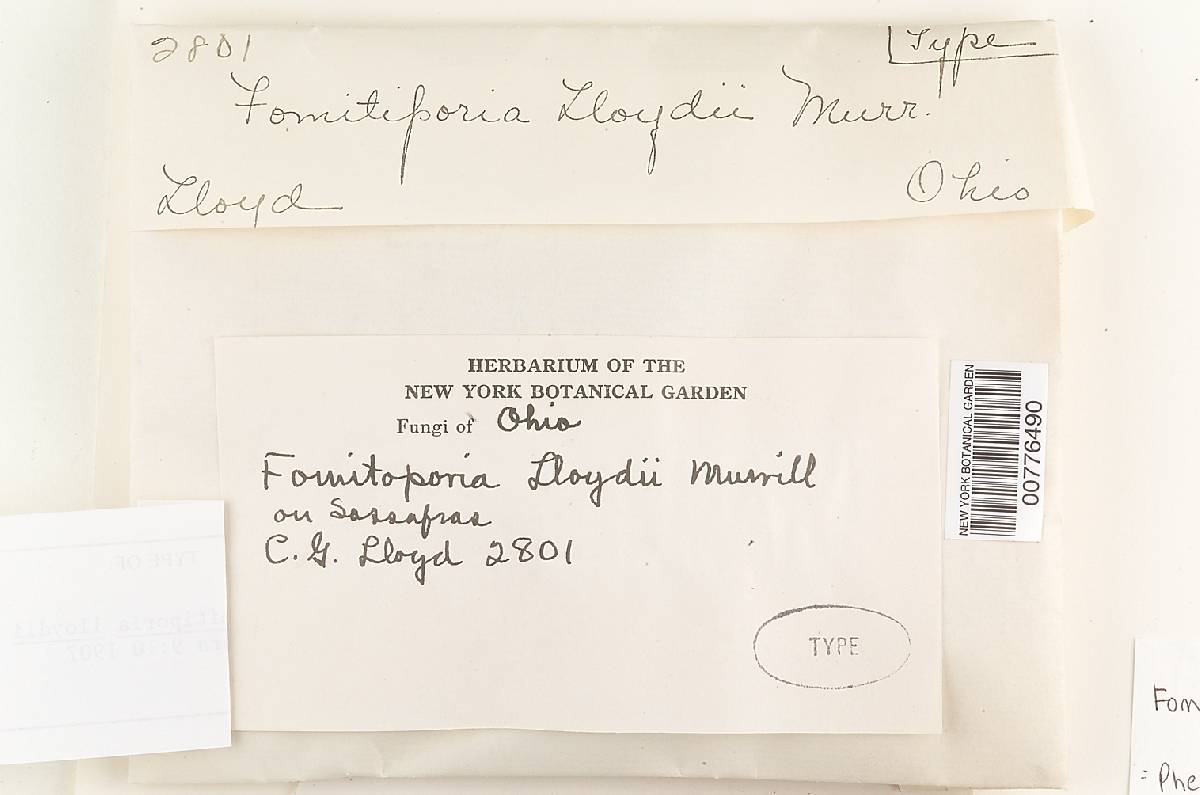 2801
Type
Fomitiporia Lloydii Murr.
Lloyd
Ohio
HERBARIUM OF THE
NEW YORK BOTANICAL GARDEN
Fungi of Ohio
Fomitoporia Lloydii Murrill
on Sassafras
C. G. Lloyd 2801
TYPE
NEW YORK BOTANICAL GARDEN
00776490
TYPE OF
itiporia lloydii
9:10 1907
Fom
= Phe